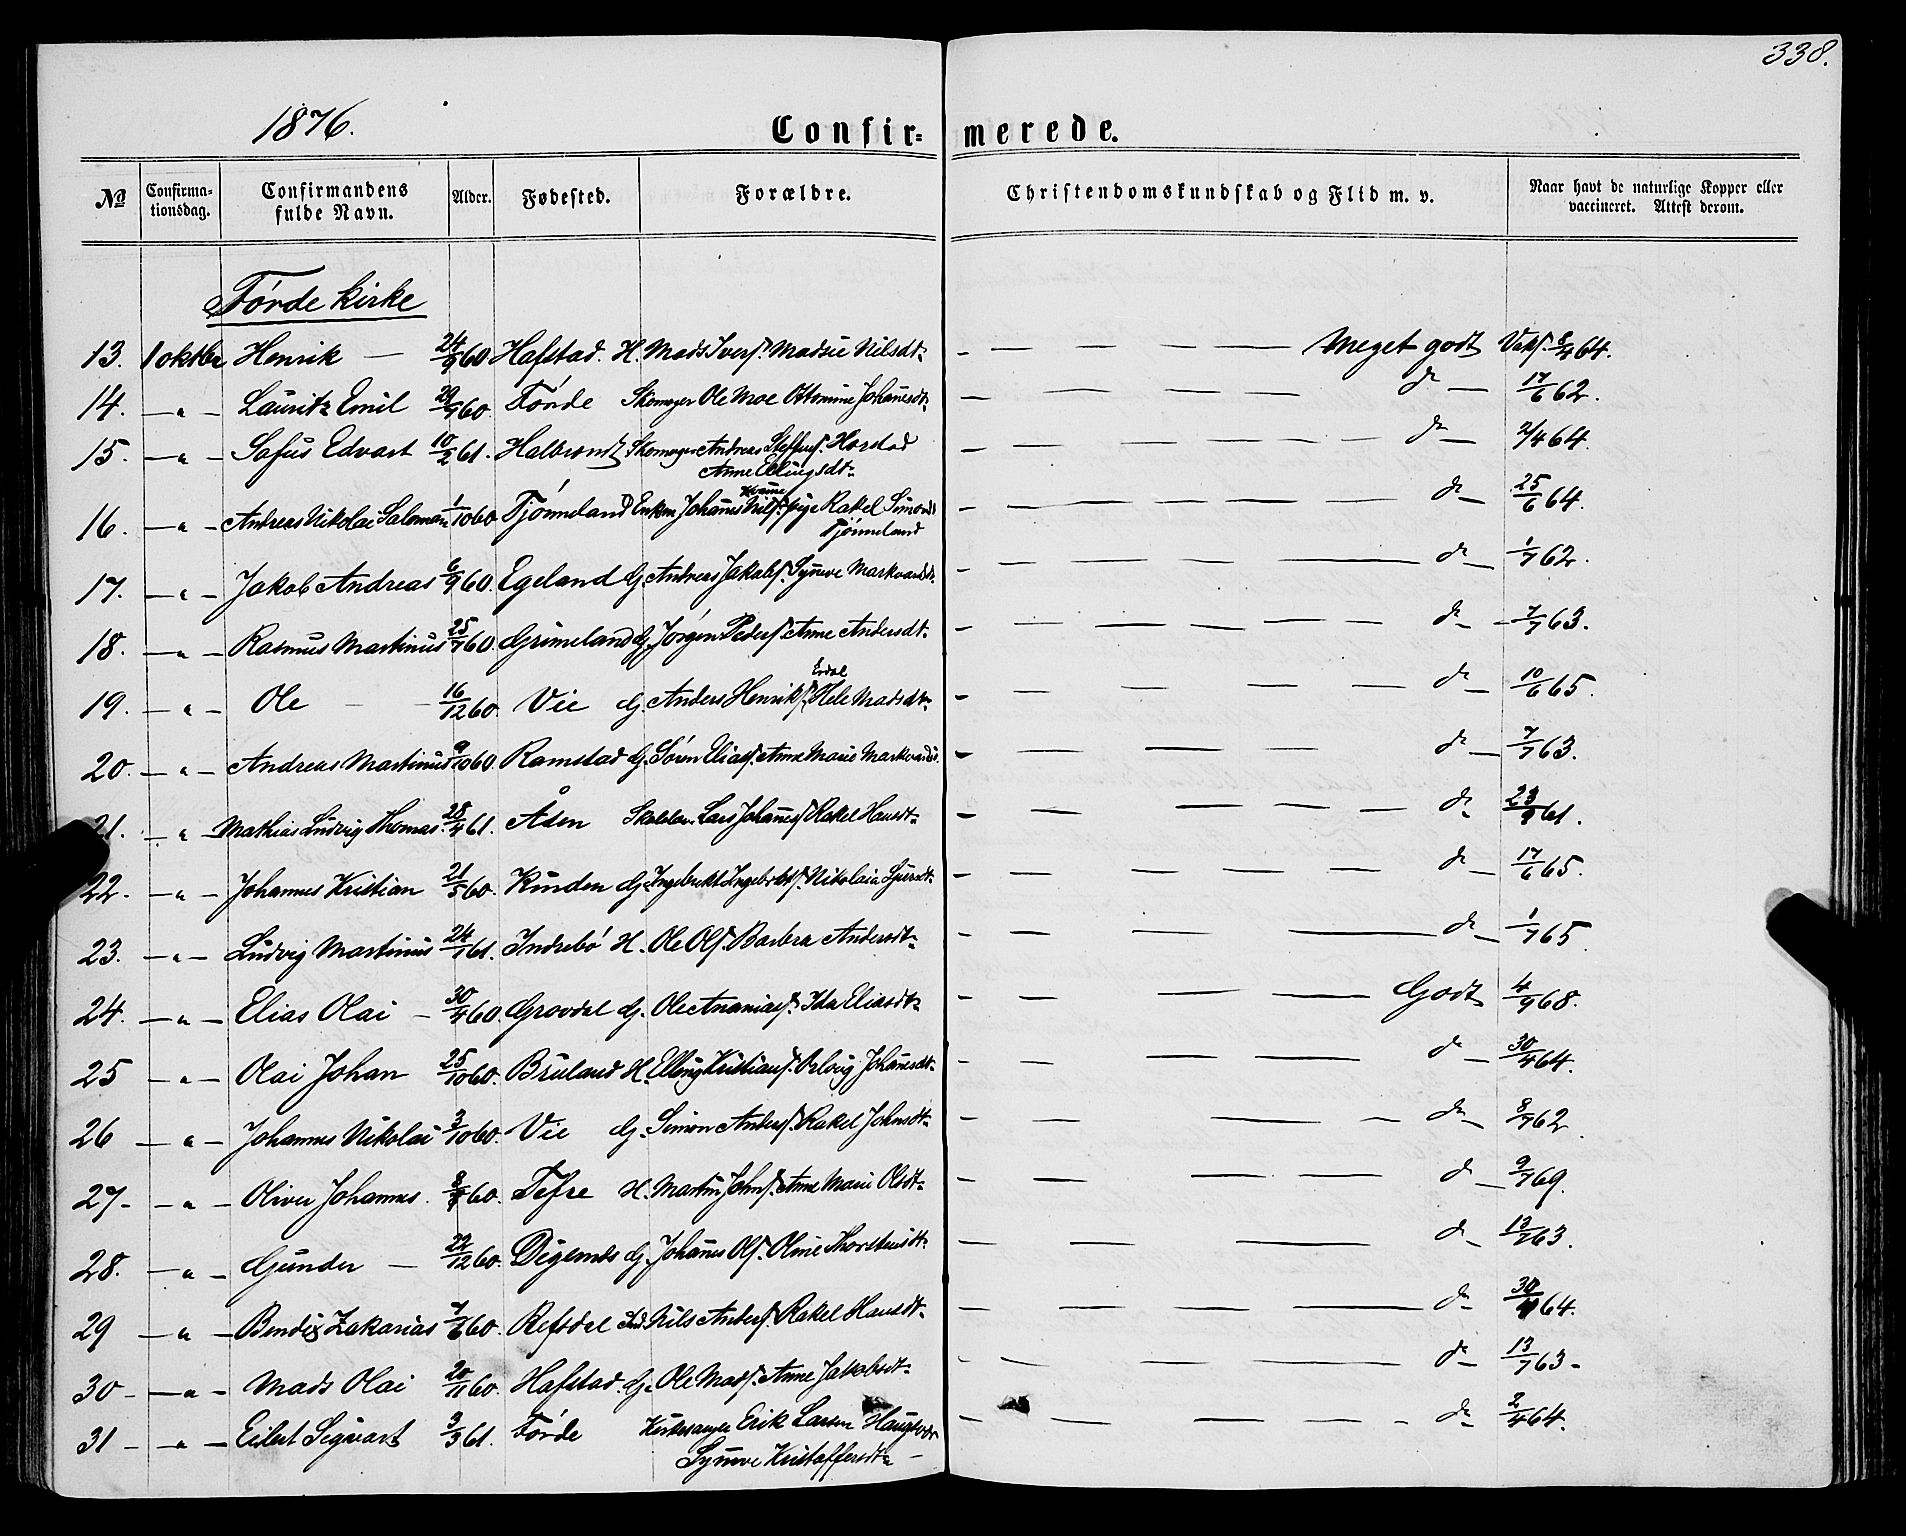 338.
1876.
Confir- merede.
No Confirma-tionsdag. Confirmandens fulde Navn. Alder. Fødested. Forældre. Christendomskundskab og Flid m. v. Naar havt de naturlige Kopper eller vaccineret. Attest derom.
Førde kirke
13. 1 oktbr Henrik — 24/9 60 Hafstad. H. Mads Ivers. Madsie Nilsdt. — — — — — Meget godt Vaks. 8/4 64.
14. — " — Lauritz Emil 29/9 60. Førde Skomager Ole Moe Ottomine Johanesdt. — — — — — do — 17/6 62.
15. — " — Sofus Edvart 10/2 61. Halbrendt Skomager Andreas Steffens. Horstad — — — — — do — 2/4 64.
Anne Ellingsdt.
16. — " — Andreas Nikolai Salomon 1/10 60 Tjønneland Enkem. Johanes Nils. Kvame pige Rakel Simonsd — — — — — do — 25/6 64.
Tjønneland
17. — " — Jakob Andreas 6/9 60. Egeland G. Andreas Jakobs. Synneve Markvardsdt. — — — — do — 1/7 62.
18. — " — Rasmus Martinus 25/7 60. Grimeland G. Jørgen Peders. Anne Andersdt. — — — — — do — 7/7 63.
19. — " — Ole — 16/12 60. Vie G. Anders Henriks. Erdal Hele Madsdt. — — — — — do — 10/6 65.
20. — " — Andreas Martinus 9/10 60. Ramstad G. Søren Elias. Anne Marie Markvardsd. — — — — do — 7/7 63.
21. — " — Mathias Ludvig Thomas. 28/4 61. Åsen Lars Johanes. Rakel Hansdt. — — — — do — 23/9 61.
22. — " — Johannes Kristian 21/5 60. Kusden G. Ingebrikt Ingebrikts. Nikolaia Sjursdt. — — — — do — 17/6 65.
23. — " — Ludvig Martinus 24/1 61. Indrebø H. Ole Ols. Barbra Andersdt. — — — — do — 1/7 65.
24. — " — Elias Olai — 30/4 60. Grovdal G. Ole Ananias. Ida Eliasdt. — — — — Godt 4/9 68.
25 — " — Olai Johan 25/10 60. Bruland H. Elling Kristians. Johanesdt. — — — — do — 30/4 64.
26 — " — Johannes Nikolai 3/10 60. Vie G. Simon Anders. Rakel Johnsdt. — — — — do — 8/7 62.
27 — " — Oliver Johannes. 8/8 60. Tefre H. Martin Johns. Anne Marie Olsdt. — — — — do — 9/7 69.
28. — " — Gunder — 22/12 60. Digernes G. Johanes Ols. Oline Thorstensdt. — — — do — 13/7 63.
29 — " — Bendix Zakarias 7/6 60. Refsdal Ind. Nils Anders. Rakel Hansdt. — — — — do — 30/4 64.
30 — " — Mads Olai 20/11 60. Hafstad. G. Ole Mads. Anne Jakobsdt. — — — — do — 13/7 63 —
31 — " — Eilert Sigvart 3/3 61. Førde Kirkesanger Erik Larsen — — — — — do — 2/4 64.
Synneve Kristoffersdt. —